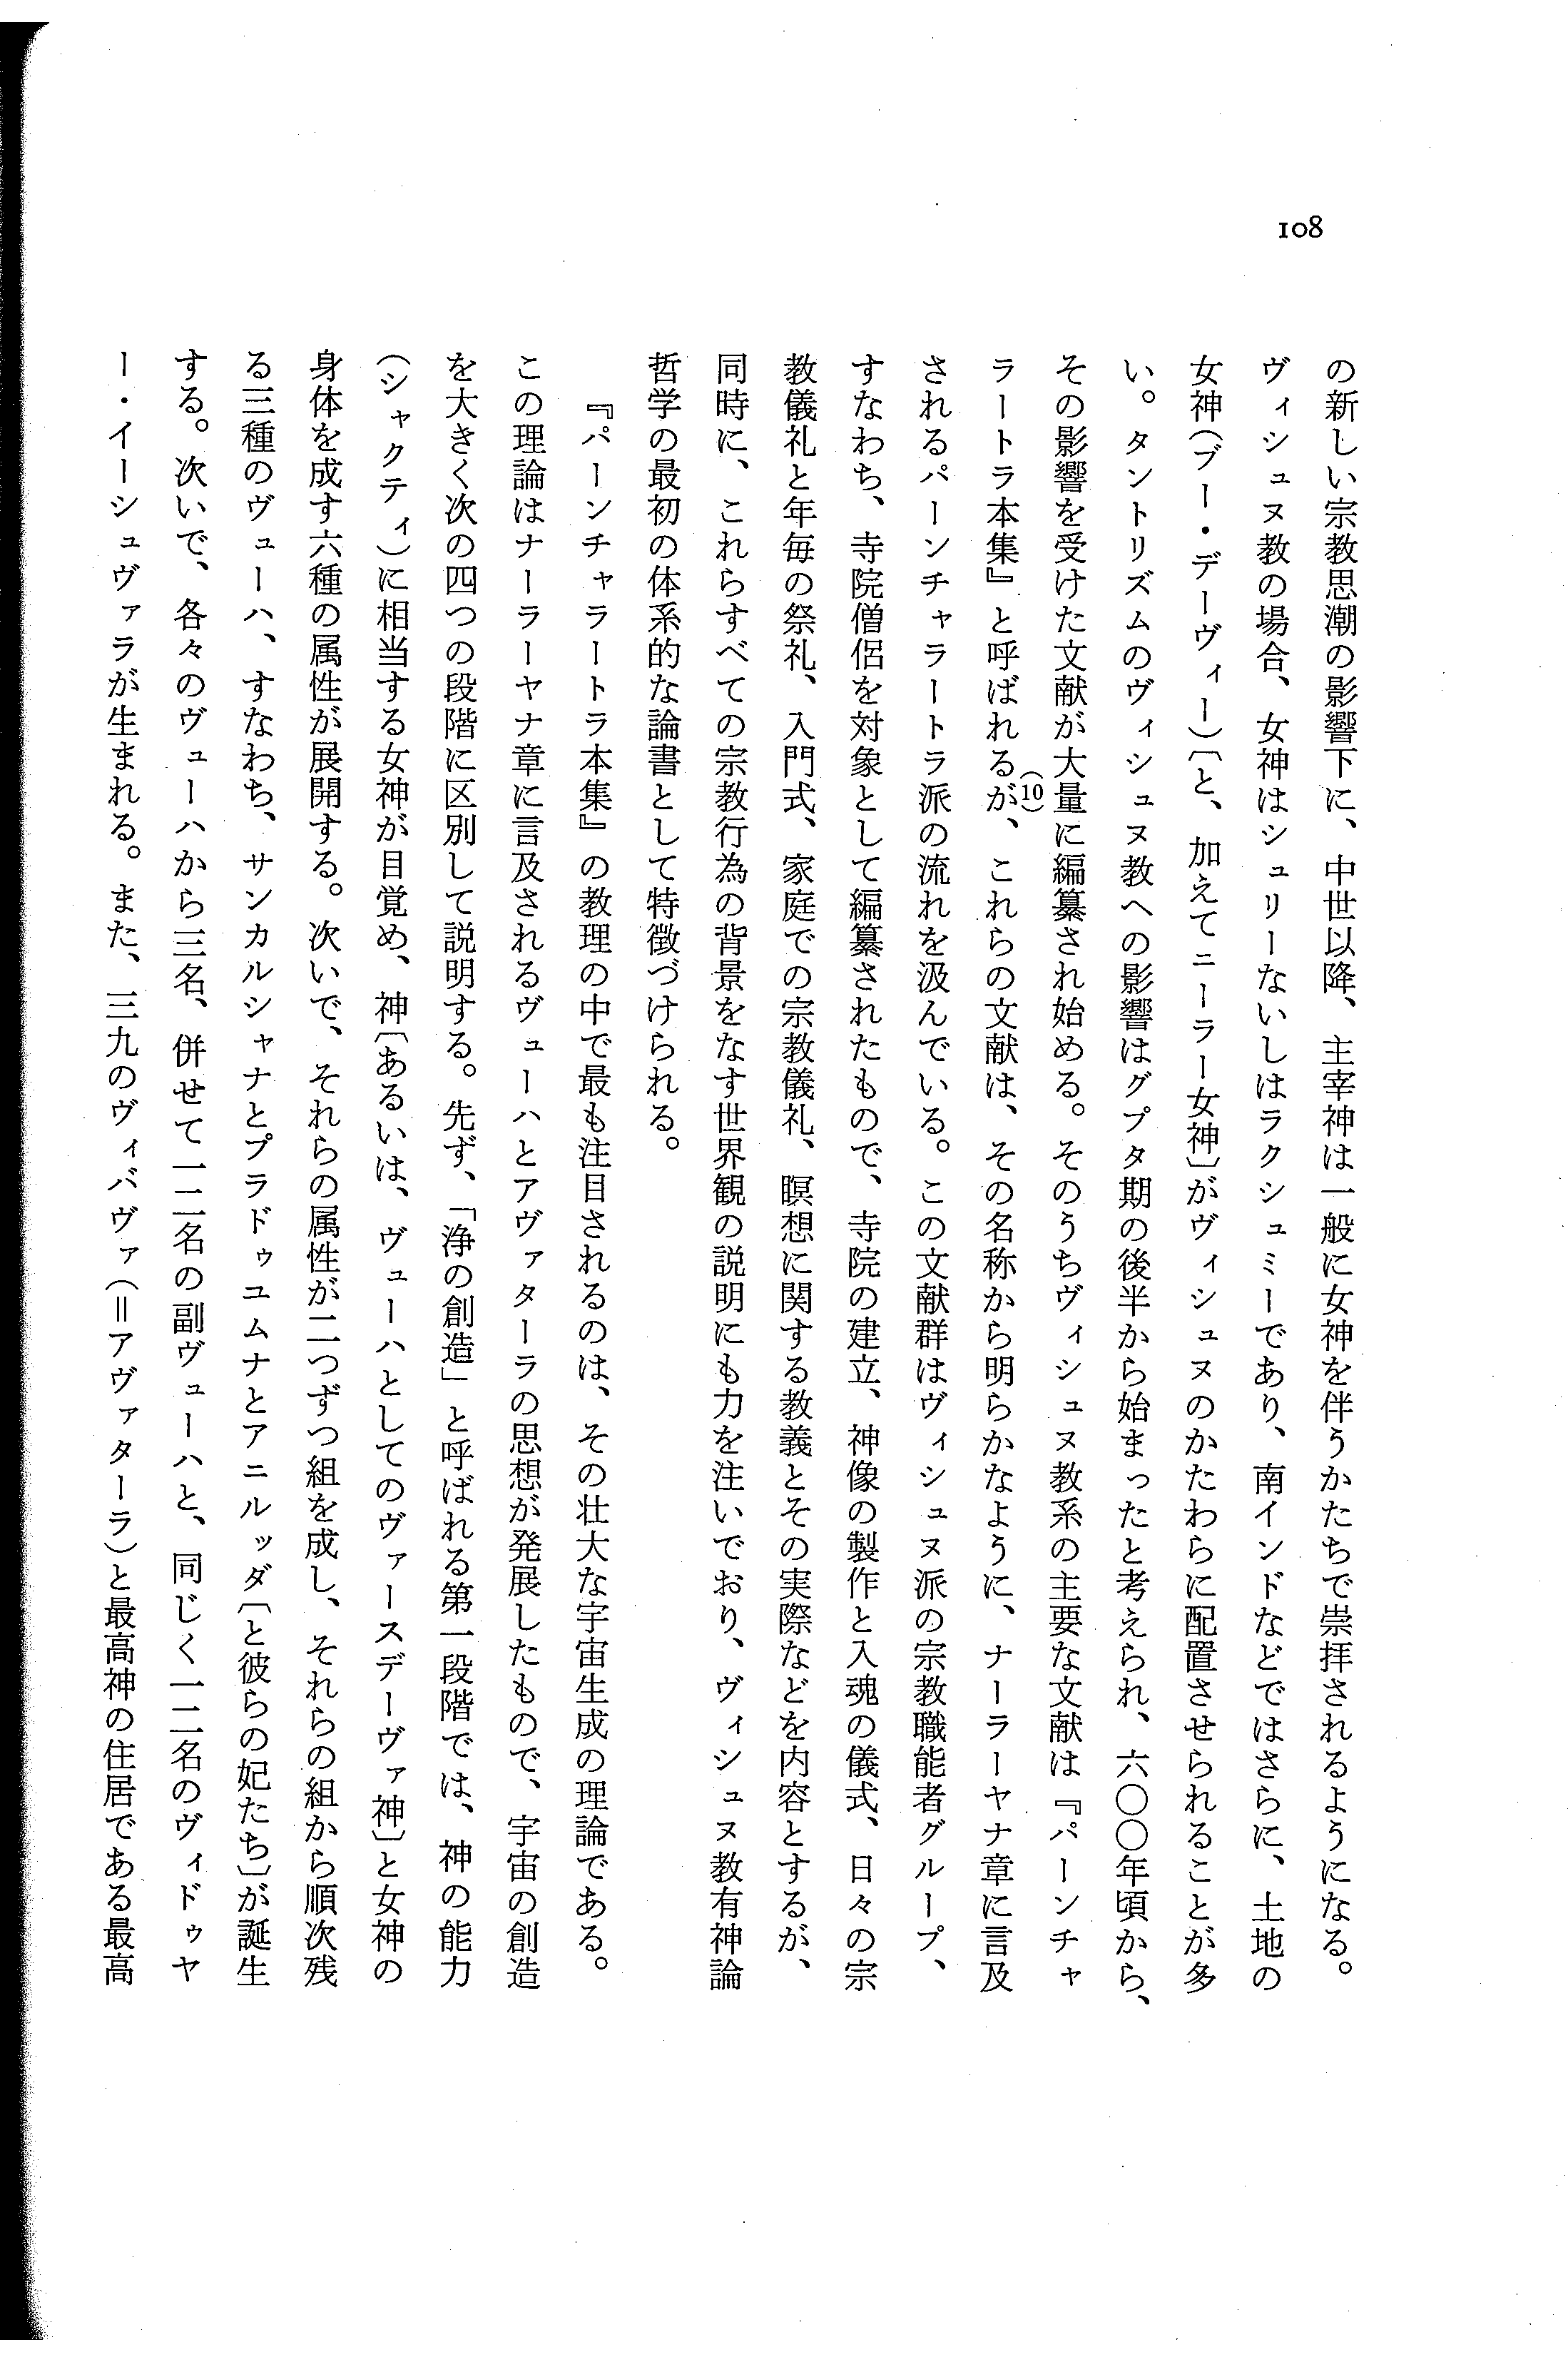 108
の新しい宗教思潮の影響下に、中世以降、主宰神は一般に女神を伴うかたちで崇拝されるようになる。
ヴィシュヌ教の場合、女神はシュリーないしはラクシュミーであり、南インドなどではさらに、土地の
女神（ブー・デーヴィー）〔と、加えてニーラー女神〕がヴィシュヌのかたわらに配置させられることが多
い。タントリズムのヴィシュヌ教への影響はグプタ期の後半から始まったと考えられ、六〇〇年頃から、
その影響を受けた文献が大量に編纂され始める。そのうちヴィシュヌ教系の主要な文献は『パーンチャ
ラートラ本集』と呼ばれるが、(10)これらの文献は、その名称から明らかなように、ナーラーヤナ章に言及
されるパーンチャラートラ派の流れを汲んでいる。この文献群はヴィシュヌ派の宗教職能者グループ、
すなわち、寺院僧侶を対象として編纂されたもので、寺院の建立、神像の製作と入魂の儀式、日々の宗
教儀礼と年毎の祭礼、入門式、家庭での宗教儀礼、瞑想に関する教義とその実際などを内容とするが、
同時に、これらすべての宗教行為の背景をなす世界観の説明にも力を注いでおり、ヴィシュヌ教有神論
哲学の最初の体系的な論書として特徴づけられる。
『パーンチャラートラ本集』の教理の中で最も注目されるのは、その壮大な宇宙生成の理論である。
この理論はナーラーヤナ章に言及されるヴューハとアヴァターラの思想が発展したもので、宇宙の創造
を大きく次の四つの段階に区別して説明する。先ず、「浄の創造」と呼ばれる第一段階では、神の能力
（シャクティ）に相当する女神が目覚め、神〔あるいは、ヴューハとしてのヴァースデーヴァ神〕と女神の
身体を成す六種の属性が展開する。次いで、それらの属性が二つずつ組を成し、それらの組から順次残
る三種のヴューハ、すなわち、サンカルシャナとプラドゥユムナとアニルッダ〔と彼らの妃たち〕が誕生
する。次いで、各々のヴューハから三名、併せて一二名の副ヴューハと、同じく一二名のヴィドゥヤ
ー・イーシュヴァラが生まれる。また、三九のヴィバヴァ（＝アヴァターラ）と最高神の住居である最高